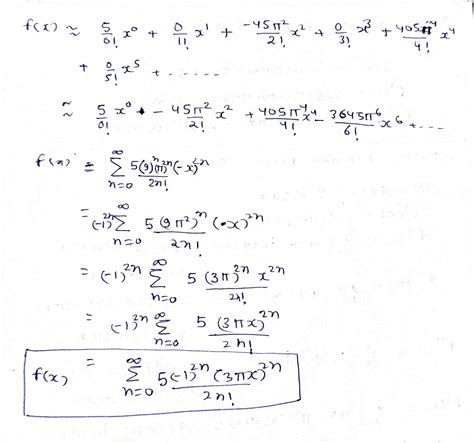 f(x) ≈ 5/0! x⁰ + 0/1! x¹ + -45π²/2! x² + 0/3! x³ + 405π⁴/4! x⁴
+ 0/5! x⁵ + ......
≈ 5/0! x⁰ - 45π²/2! x² + 405π⁴/4! x⁴ - 3645π⁶/6! x⁶ + ...
f(x) = ∞Σn=0 5(9)ⁿ(π)²ⁿ(-x)²ⁿ/2n!
= (-1)²ⁿ ∞Σn=0 5(9π²)ⁿ(x)²ⁿ/2n!
= (-1)²ⁿ ∞Σn=0 5(3π)²ⁿ x²ⁿ/2n!
= (-1)²ⁿ ∞Σn=0 5(3πx)²ⁿ/2n!
f(x) = ∞Σn=0 5(-1)²ⁿ(3πx)²ⁿ/2n!